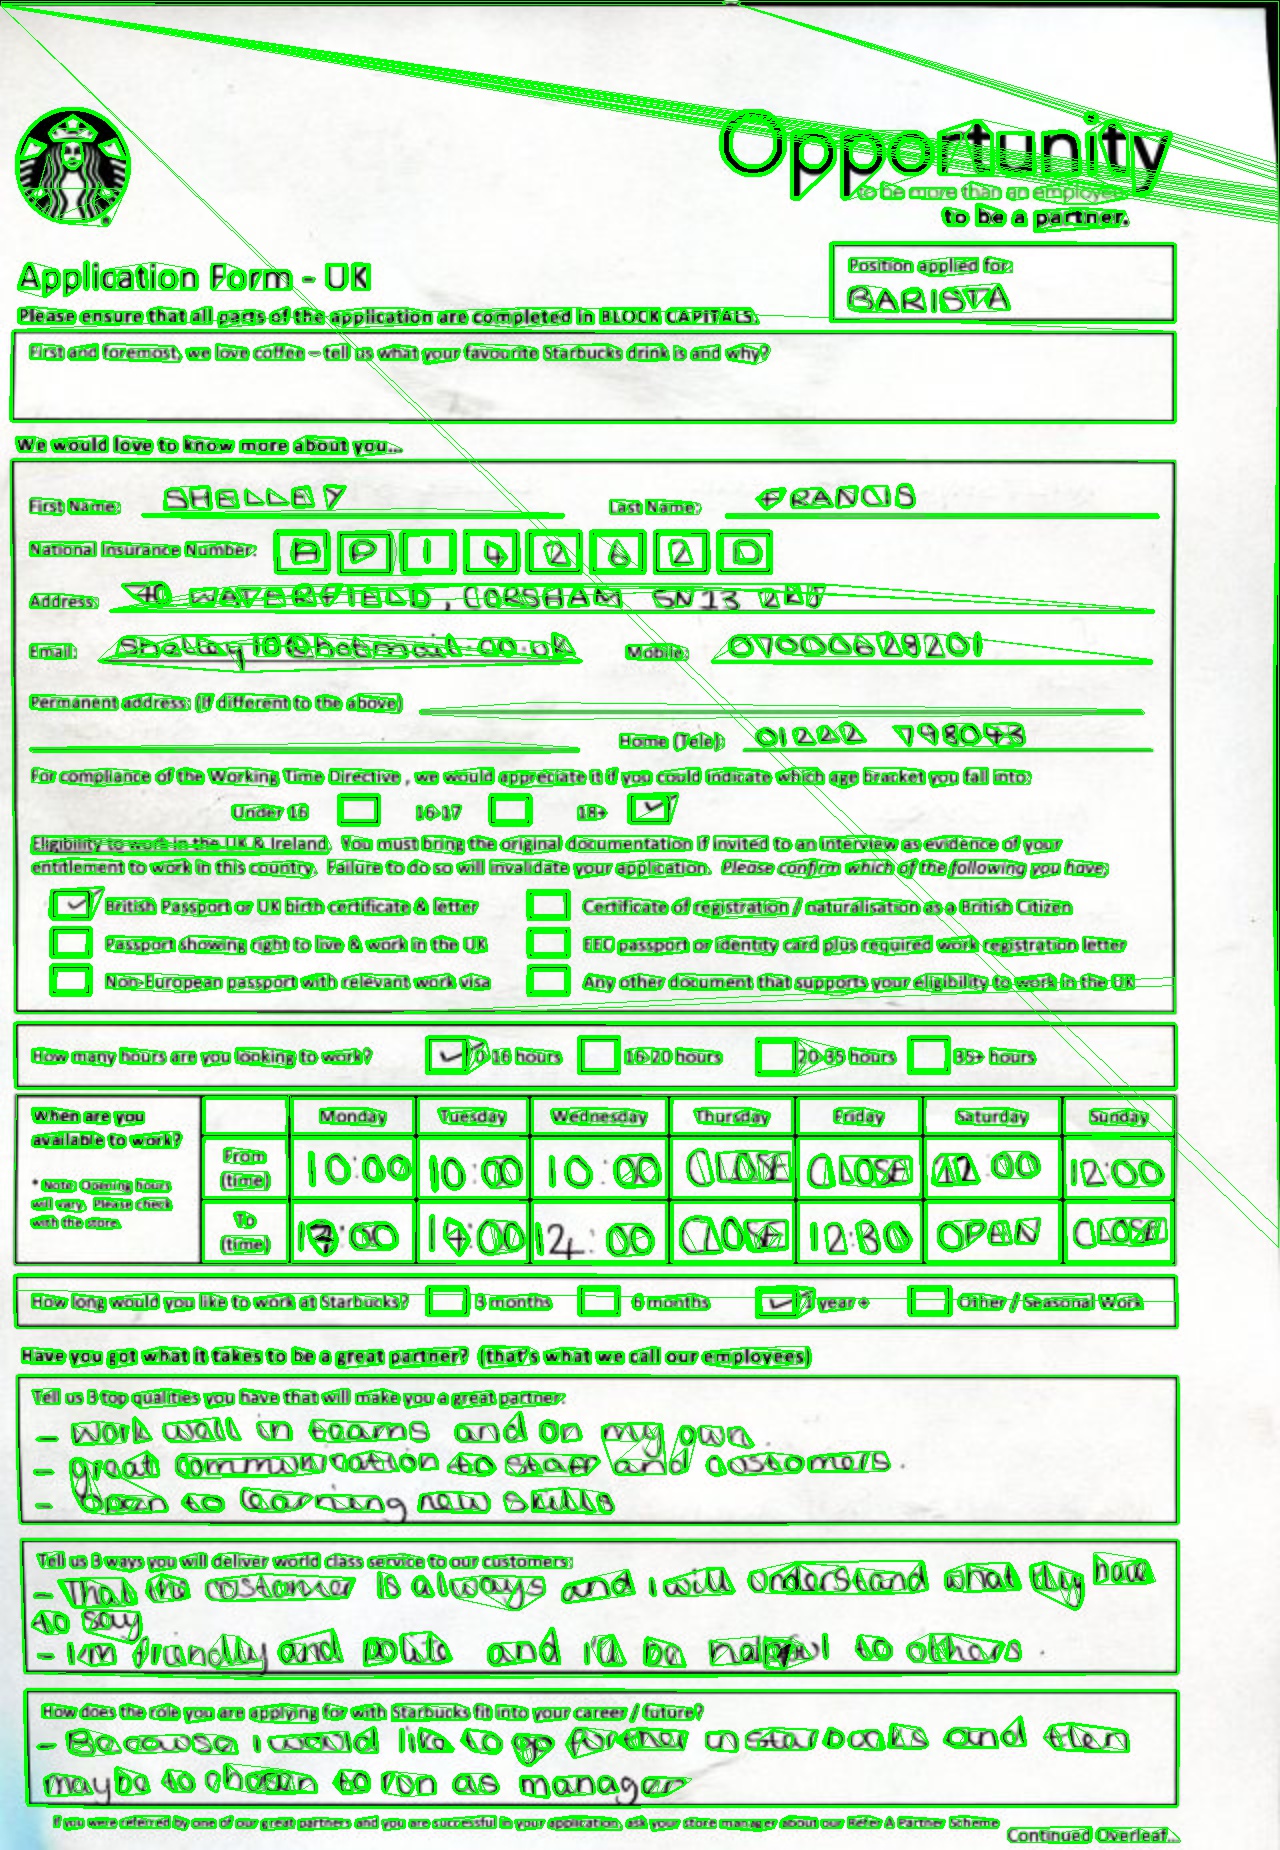 Opportunity
to be more than an employee,
to be a partner.
Application Form - UK
Position applied for:
BARISTA
Please ensure that all parts of the application are completed in BLOCK CAPITALS.
First and foremost, we love coffee – tell us what your favourite Starbucks drink is and why?
We would love to know more about you...
First Name: SHELLEY Last Name: FRANCIS
National Insurance Number: B P 1 4 2 6 2 D
Address: 40 WATERFIELD, CORSHAM SN13 2KJ
Email: Shelley10@hotmail.co.uk Mobile: 07000628201
Permanent address: (If different to the above)
Home (Tele): 01222 798043
For compliance of the Working Time Directive, we would appreciate it if you could indicate which age bracket you fall into:
Under 16 16-17 18+ ✓
Eligibility to work in the UK & Ireland. You must bring the original documentation if invited to an interview as evidence of your
entitlement to work in this country. Failure to do so will invalidate your application. Please confirm which of the following you have:
✓ British Passport or UK birth certificate & letter Certificate of registration / naturalisation as a British Citizen
Passport showing right to live & work in the UK EEC passport or identity card plus required work registration letter
Non-European passport with relevant work visa Any other document that supports your eligibility to work in the UK
How many hours are you looking to work? ✓ 0-16 hours 16-20 hours 20-35 hours 35+ hours
When are you available to work? Monday Tuesday Wednesday Thursday Friday Saturday Sunday
* Note: Opening hours will vary. Please check with the store.
From (time) 10:00 10:00 10:00 CLOSE CLOSE 12:00 12:00
To (time) :00 14:00 12: 00 CLOSE 12:30 OPEN CLOSE
How long would you like to work at Starbucks? 3 months 6 months ✓ 1 year + Other / Seasonal Work
Have you got what it takes to be a great partner? (that's what we call our employees)
Tell us 3 top qualities you have that will make you a great partner:
- work well in teams and on my own.
- great communication to staff and customers.
- open to learning new skills
Tell us 3 ways you will deliver world class service to our customers:
- That the costomer is always and i will understand what they have
to say
- I'm friendly and polite and i'll be helpful to others.
How does the role you are applying for with Starbucks fit into your career / future?
- Because i would like to go further in starbucks and then
maybe to chosen to run as manager
If you were referred by one of our great partners and you are successful in your application, ask your store manager about our Refer A Partner Scheme
Continued Overleaf...